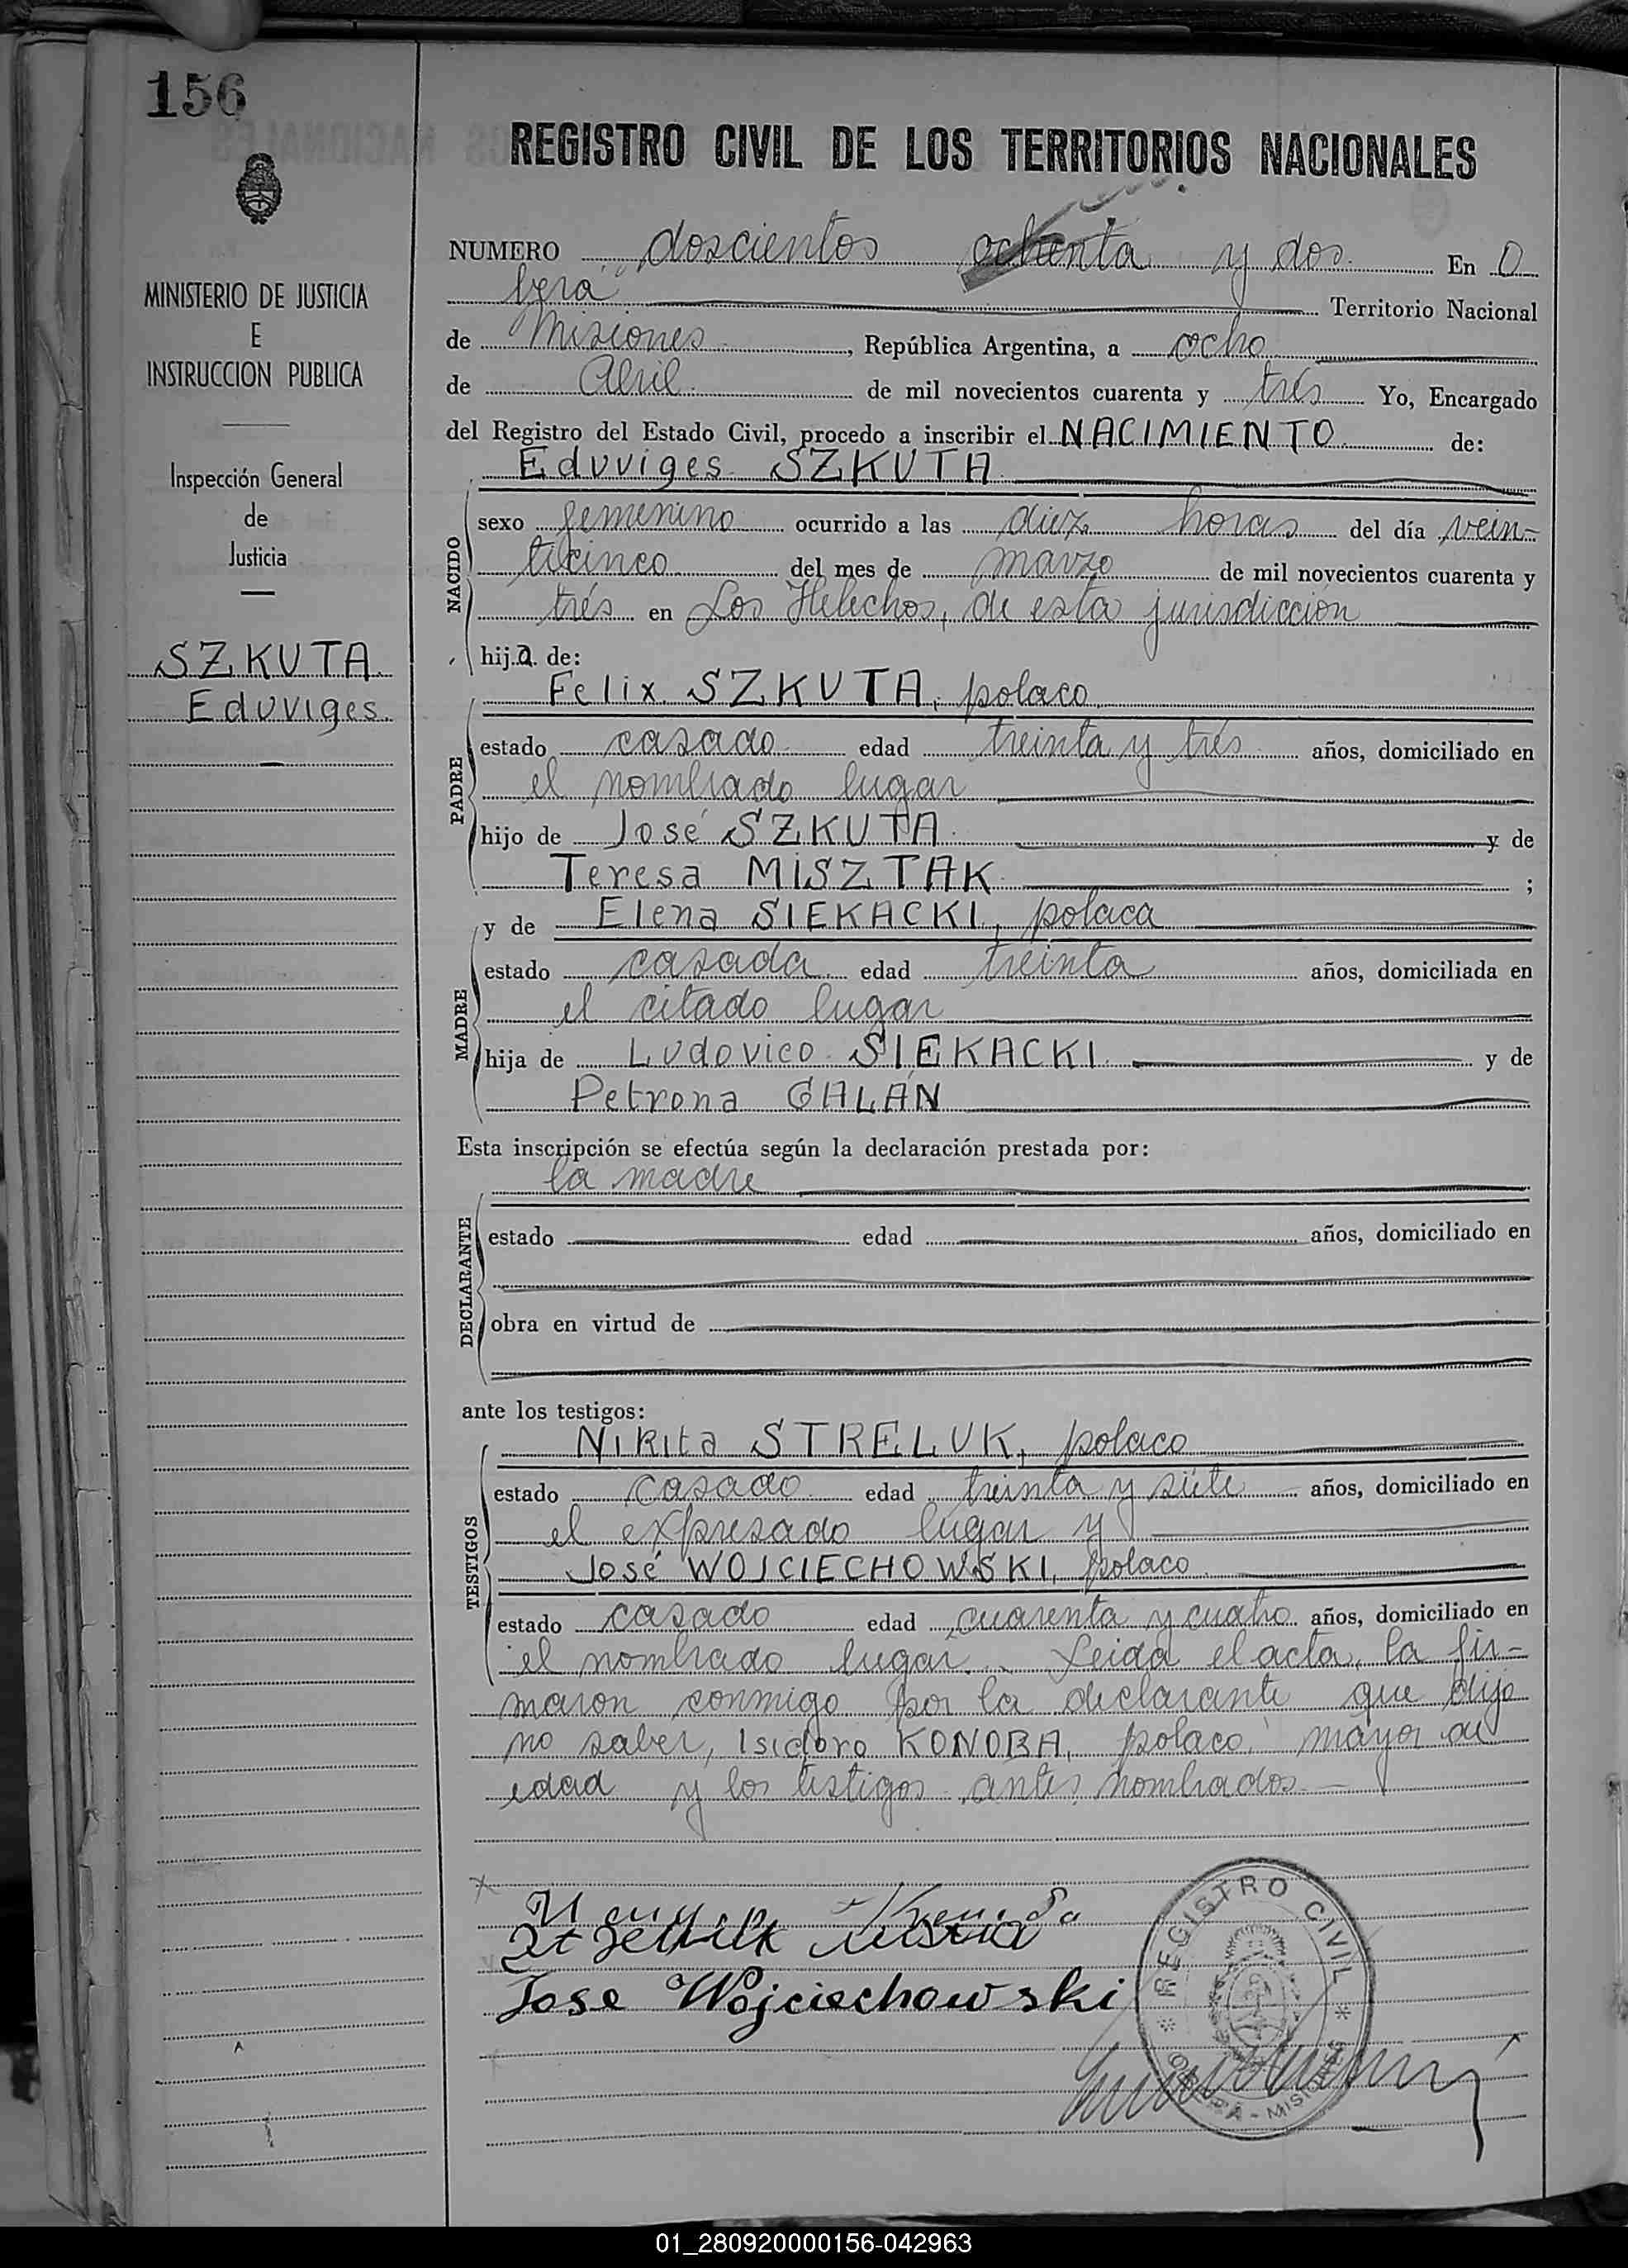 156
MINISTERIO DE JUSTICIA
E
INSTRUCCION PUBLICA
Inspección General
de
Justicia
SZKUTA
Eduviges
REGISTRO CIVIL DE LOS TERRITORIOS NACIONALES
NUMERO doscientos ochenta y dos En O
berá Territorio Nacional
de Misiones, República Argentina, a ocho
de Abril de mil novecientos cuarenta y trés Yo, Encargado
del Registro del Estado Civil, procedo a inscribir el NACIMIENTO de:
Eduviges SZKUTA
NACIDO
sexo femenino ocurrido a las diez horas del día vein-
ticinco del mes de marzo de mil novecientos cuarenta y
trés en Los Helechos, de esta jurisdicción
hija de:
PADRE
Felix SZKUTA, polaco
estado casado edad treinta y trés años, domiciliado en
el nombrado lugar
hijo de José SZKUTA y de
Teresa MISZTAK ;
MADRE
y de Elena SIEKACKI, polaca
estado casada edad treinta años, domiciliada en
el citado lugar
hija de Ludovico SIEKACKI y de
Petrona GALÁN
Esta inscripción se efectúa según la declaración prestada por:
DECLARANTE
la madre
estado edad años, domiciliado en
obra en virtud de
ante los testigos:
TESTIGOS
Nikita STRELUK, polaco
estado casado edad treinta y siete años, domiciliado en
el expresado lugar y
José WOJCIECHOWSKI, polaco
estado casado edad cuarenta y cuatro años, domiciliado en
el nombrado lugar. Leida el acta, la fir-
maron conmigo por la declarante que dijo
no saber, Isidoro KONOBA, polaco, mayor de
edad y los testigos antes nombrados
Jose Wojciechowski
REGISTRO CIVIL
OBERÁ - MISIONES
01_280920000156-042963